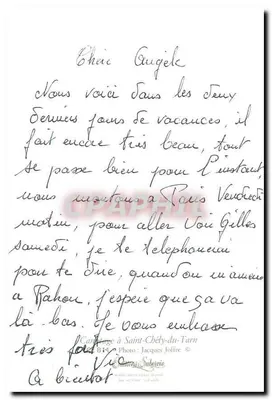 Chère Angèle
Nous voici dans les deux
derniers jours de vacances, il
fait encore très beau, tout
se passe bien pour l'instant,
nous montons à Paris Vendredi
matin, pour aller voir Gilles
samedi, je te telephonerai
pour te dire, quand on
à Rahon, j'espère que ça va
là-bas. Je vous embrasse
très fort
A bientôt
à Saint-Chély-du-Tarn
Photo : Jacques Joffre ©